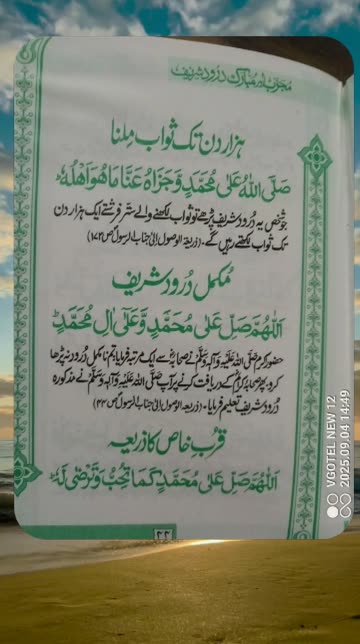 مجرب اور مبارک درود شریف
ہزار دن تک ثواب ملنا
صَلَّی اللّٰهُ عَلٰی مُحَمَّدٍ وَّجَزَاهُ عَنَّا مَا هُوَ اَهْلُهٗ
جو شخص یہ درود شریف پڑھے تو ثواب لکھنے والے ستر فرشتے ایک ہزار دن
تک ثواب لکھتے رہیں گے۔ (ذریعۃ الوصول الیٰ جناب الرسول ص ۱۷۲)
مُکمل درود شریف
اَللّٰهُمَّ صَلِّ عَلٰی مُحَمَّدٍ وَّعَلٰی اٰلِ مُحَمَّدٍ
حضور اکرم صَلَّی اللّٰہُ عَلَیْہِ وَآلِہٖ وَسَلَّمَ نے صحابہؓ سے ایک مرتبہ فرمایا: تم نامکمل درود نہ پڑھا
کرو، پھر صحابہ کرامؓ کے دریافت کرنے پر آپ صَلَّی اللّٰہُ عَلَیْہِ وَآلِہٖ وَسَلَّمَ نے مذکورہ
درود شریف تعلیم فرمایا۔ (ذریعۃ الوصول الیٰ جناب الرسول ص ۴۴)
قربِ خاص کا ذریعہ
اَللّٰهُمَّ صَلِّ عَلٰی مُحَمَّدٍ کَمَا تُحِبُّ وَتَرْضٰی لَهٗ
۲۲
VGOTEL NEW 12
2025.09.04 14:49